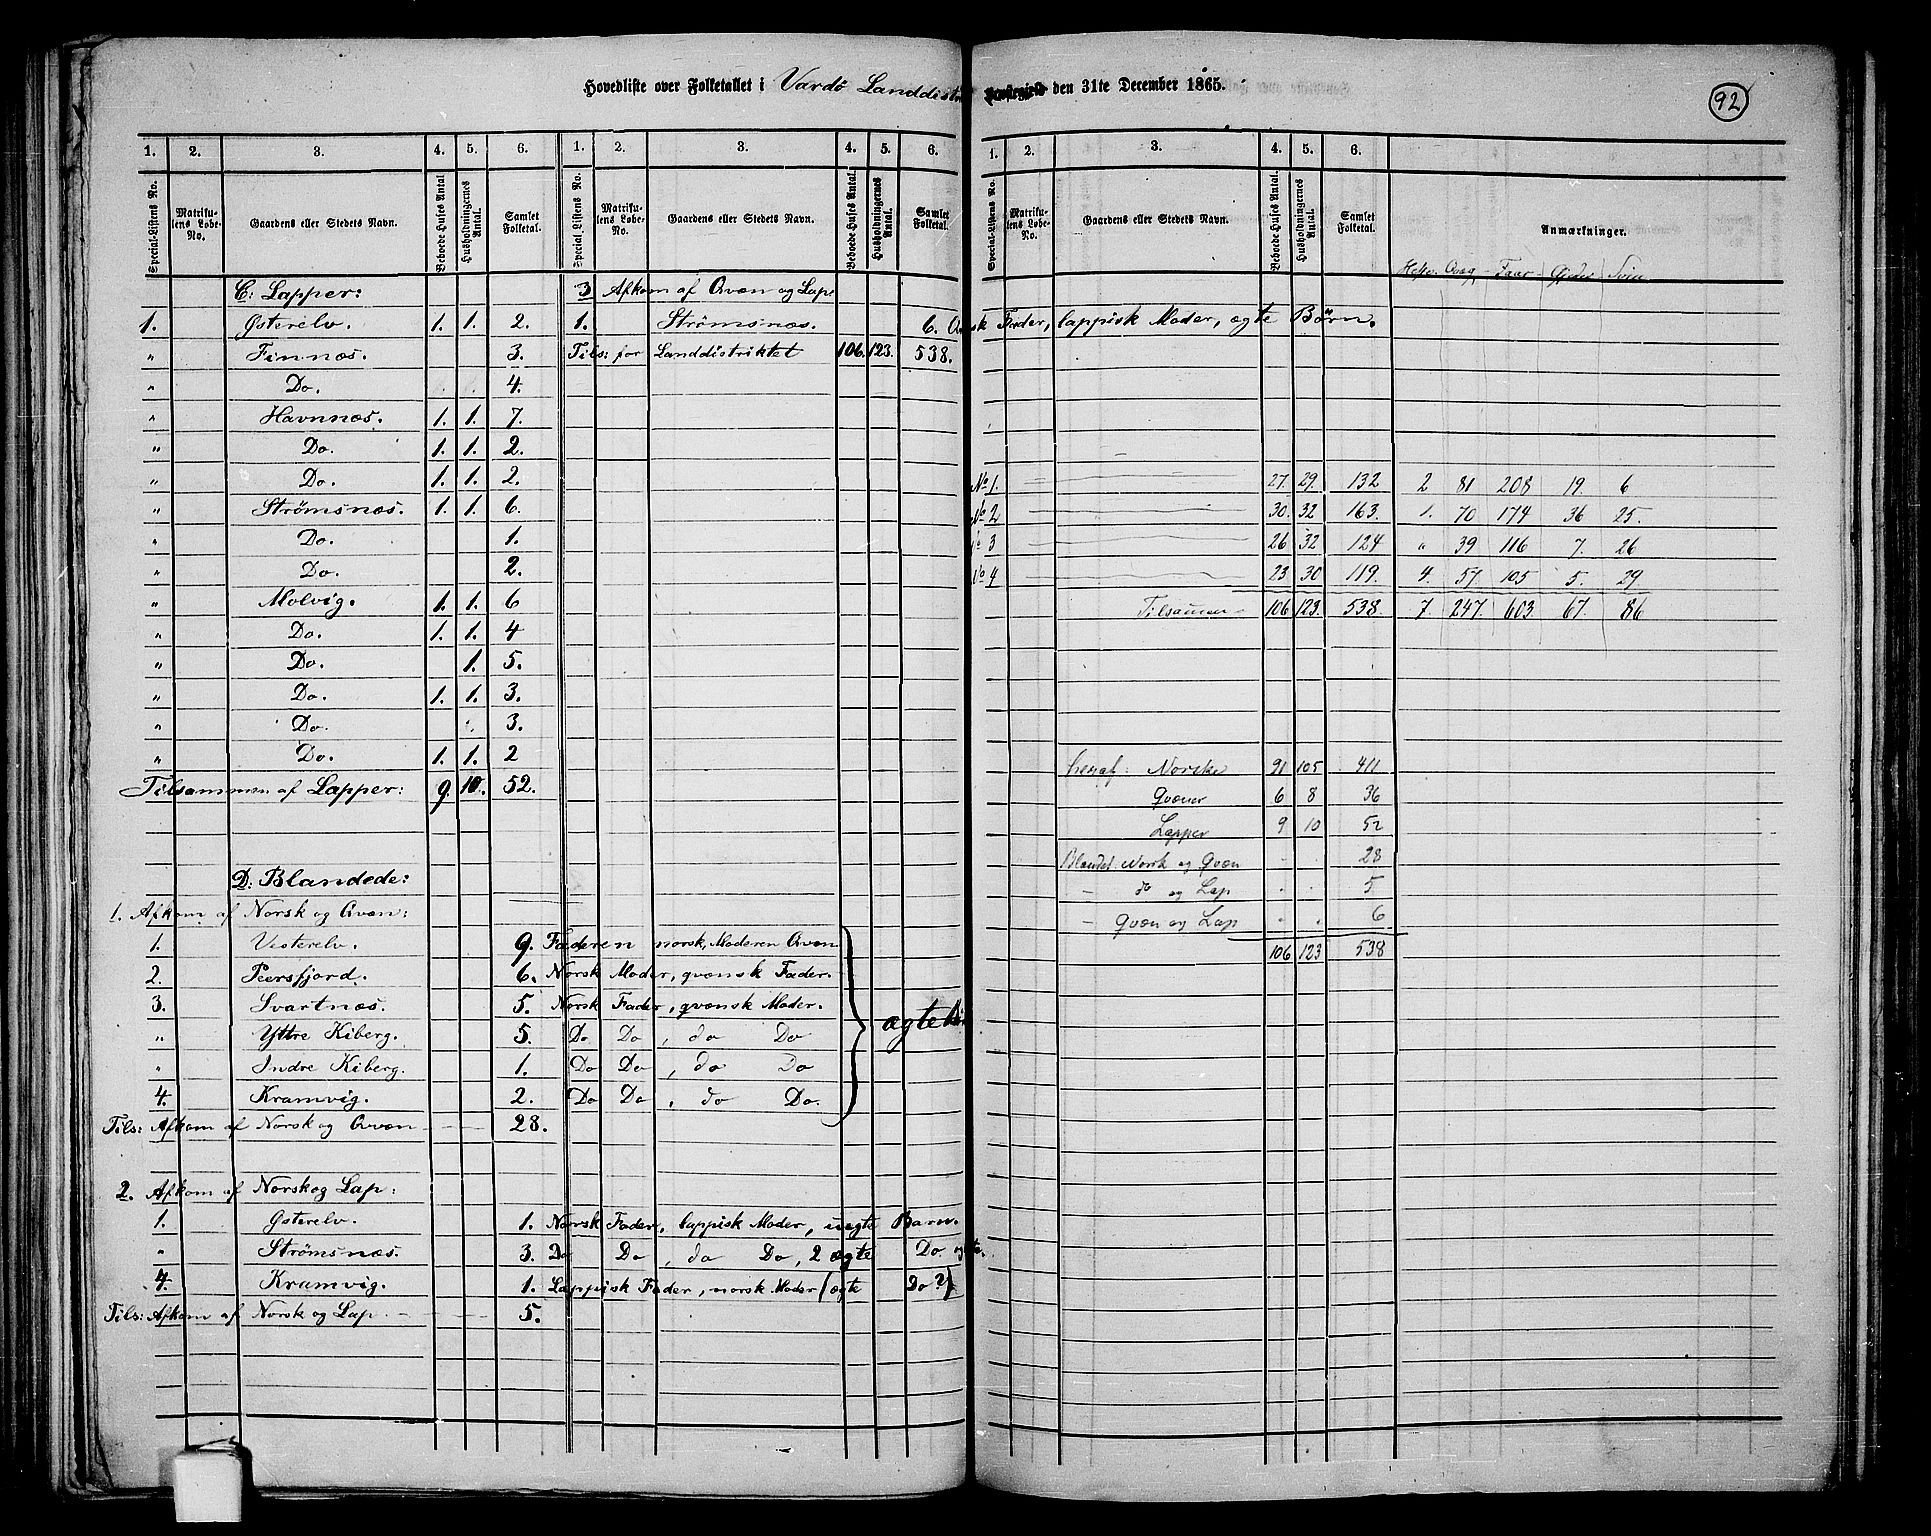 Hovedliste over Folketallet i Vardö Landdistr Præstegjeld den 31te December 1865.
92
1. 2. 3. 4. 5. 6. 1. 2. 3. 4. 5. 6. 1. 2. 3. 4. 5. 6.
Special-Listens No. Matrikulens Løbe-No. Gaardens eller Stedets Navn. Beboede Huses Antal Husholdningernes Antal. Samlet Folketal. Special-Listens No. Matrikulens Løbe-No. Gaardens eller Stedets Navn. Beboede Huses Antal. Husholdningernes Antal. Samlet Folketal. Special-Listens No. Matrikulens Løbe-No. Gaardens eller Stedets Navn. Beboede Huses Antal. Husholdningernes Antal. Samlet Folketal. Anmærkninger.
Heste. Qvæg Faar Gjeder Svin
C: Lapper: 3 Afkom af Qvæn og Lap
1. Østerelv. 1. 1. 2. 1. Strömsnæs. 6. Qvænsk Fader, lappisk Moder, ægte Börn.
" Finnæs. 3. Tils: for Landdistriktet 106. 123. 538.
" Do. 4.
" Havnnæs. 1. 1. 7.
" Do. 1. 1. 2.
" Do. 1. 1. 2. No 1. 27. 29. 132 2 81 208 19. 6
" Strömsnæs. 1. 1. 6. No 2 30. 32 163. 1. 70 174 36 25.
" Do. 1. No 3 26 32 124 " 39 116 7. 26
" Do. 2. No 4 23 30 119. 4. 57 105 5. 29
" Molvig. 1. 1. 6 Tilsammen 106 123. 538. 7. 247. 603. 67. 86
" Do. 1. 1. 4
" Do. 1. 5.
" Do. 1. 1. 3.
" Do. 3.
" Do. 1. 1. 2
heraf: Norske 91 105 411
Tilsammen af Lapper: 9. 10. 52.
Qvæner 6 8 36
Lapper 9 10 52
Blandet Norsk og Qvæn - . 28
D: Blandede:
- do og Lap . . 5
1. Afkom af Norsk og Qvæn:
- Qvæn og Lap " " 6
1. Vesterelv. 9. Faderen norsk, Moderen Qvæn
106 123 538
2. Peersfjord. 6. Norsk Moder, qvænsk Fader.
3. Svartnæs. 5. Norsk Fader, qvænsk Moder.
ægte
" Yttre Kiberg. 5. Do Do, do Do
" Indre Kiberg. 1. Do Do, do Do
4. Kramvig. 2. Do Do, do Do.
Tils: Afkom af Norsk og Qvæn 28.
2. Afkom af Norsk og Lap:
1. Østerelv. 1. Norsk Fader, lappisk Moder, uægte Barn.
" Strömsnæs. 3. Do Do, do Do, 2 ægte Do.
4. Kramvig. 1. Lappisk Fader, norsk Moder (ægte Do?)
Tils: Afkom af Norsk og Lap. 5.